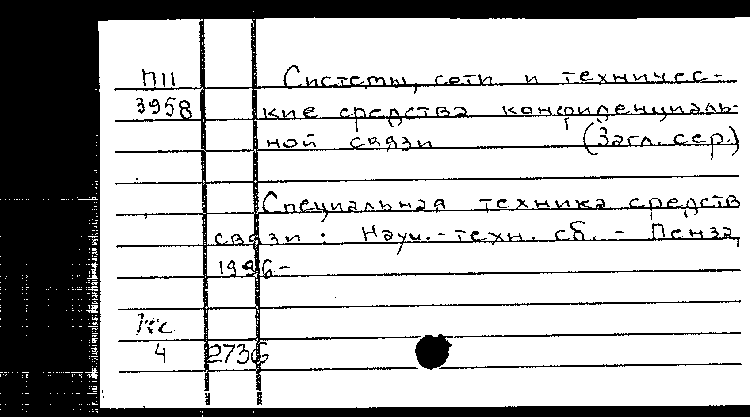 П11 Системы, сети и техничес-
3958 кие средства конфиденциаль-
ной связи (Загл. сер.)
Специальная техника средств
связи: Науч.-техн. сб. - Пенза,
1996-
4 2736